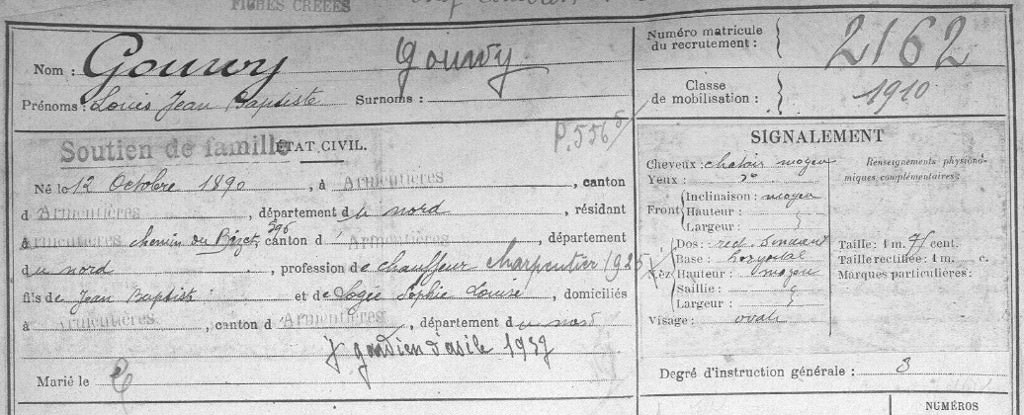 FICHES CRÉÉES
Nom : Gouwy Gouwy
Prénoms : Louis Jean Baptiste Surnoms :
Numéro matricule du recrutement : 2162
Classe de mobilisation : 1910
P. 556
Soutien de famille ÉTAT CIVIL.
Né le 12 Octobre 1890, à Armentières, canton
d Armentières, département du nord, résidant
à Armentières chemin du Bizet, 296 canton d Armentières, département
du nord, profession de chauffeur Charpentier (1925)
fils de Jean Baptiste et de Sophie Louise, domiciliés
à Armentières, canton d Armentières, département du nord
gardien d'asile 1937
Marié le
SIGNALEMENT
Cheveux : chatain moyen
Yeux : do
Front Inclinaison : moyen
Hauteur :
Largeur :
Nez Dos : rect. sinueux
Base : horizontal
Hauteur : moyen
Saillie :
Largeur :
Visage : ovale
Renseignements physionomiques complémentaires :
Taille : 1 m. 71 cent.
Taille rectifiée : 1 m. c.
Marques particulières :
Degré d'instruction générale : 3
NUMÉROS